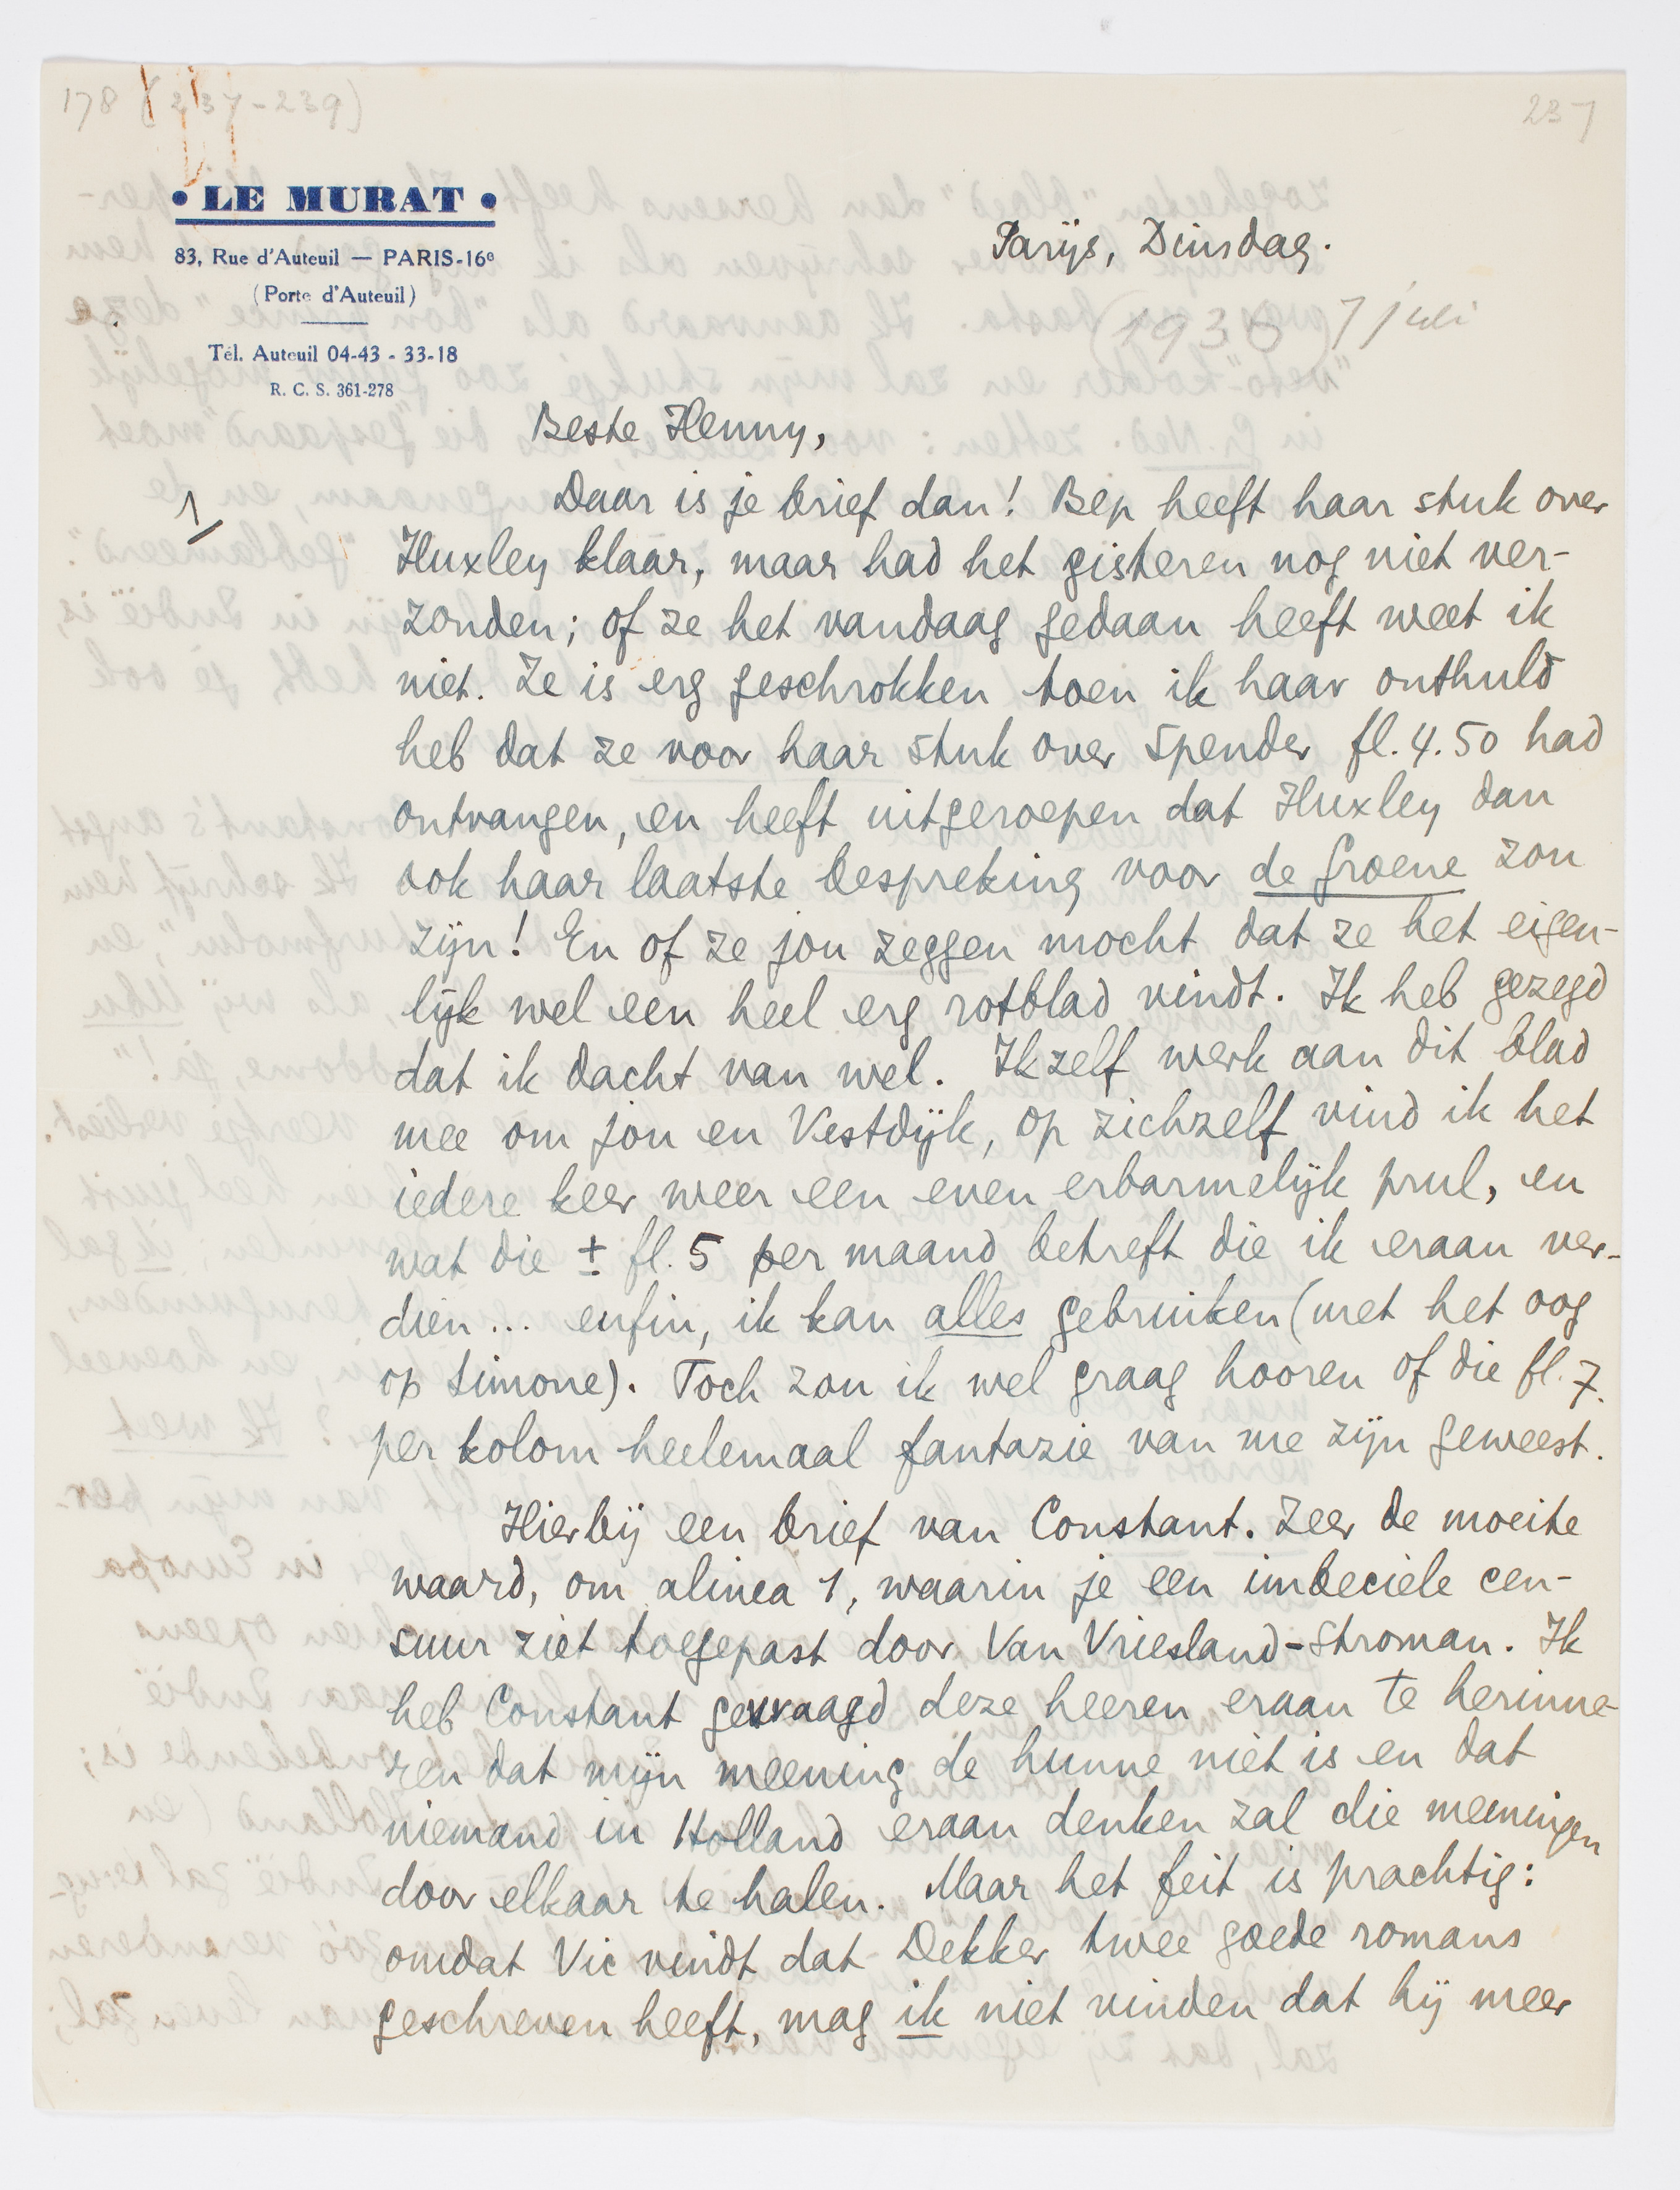 178 (237-239)
237
• LE MURAT •
83, Rue d'Auteuil — PARIS-16e
(Porte d'Auteuil)
Tél. Auteuil 04-43 - 33-18
R. C. S. 361-278
Parijs, Dinsdag.
(1936) 7 juli
Beste Henny,
1
Daar is je brief dan! Bep heeft haar stuk over
Huxley klaar, maar had het gisteren nog niet ver-
zonden; of ze het vandaag gedaan heeft weet ik
niet. Ze is erg geschrokken toen ik haar onthuld
heb dat ze voor haar stuk over Spender fl. 4.50 had
ontvangen, en heeft uitgeroepen dat Huxley dan
ook haar laatste bespreking voor de Groene zou
zijn! En of ze jou zeggen mocht, dat ze het eigen-
lijk wel een heel erg rotblad vindt. Ik heb gezegd
dat ik dacht van wel. Ikzelf werk aan dit blad
mee om jou en Vestdijk, op zichzelf vind ik het
iedere keer weer een even erbarmelijk prul, en
wat die ± fl. 5 per maand betreft die ik eraan ver-
dien... enfin, ik kan alles gebruiken (met het oog
op Simone). Toch zou ik wel graag hooren of die fl. 7.
per kolom heelemaal fantazie van me zijn geweest.
Hierbij een brief van Constant. Zeer de moeite
waard, om alinea 1, waarin je een imbeciele cen-
suur ziet toegepast door Van Vriesland-Stroman. Ik
heb Constant gevraagd deze heeren eraan te herinne-
ren dat mijn meening de hunne niet is en dat
niemand in Holland eraan denken zal die meeningen
door elkaar te halen. Maar het feit is prachtig:
omdat Vic vindt dat Dekker twee goede romans
geschreven heeft, mag ik niet vinden dat hij meer